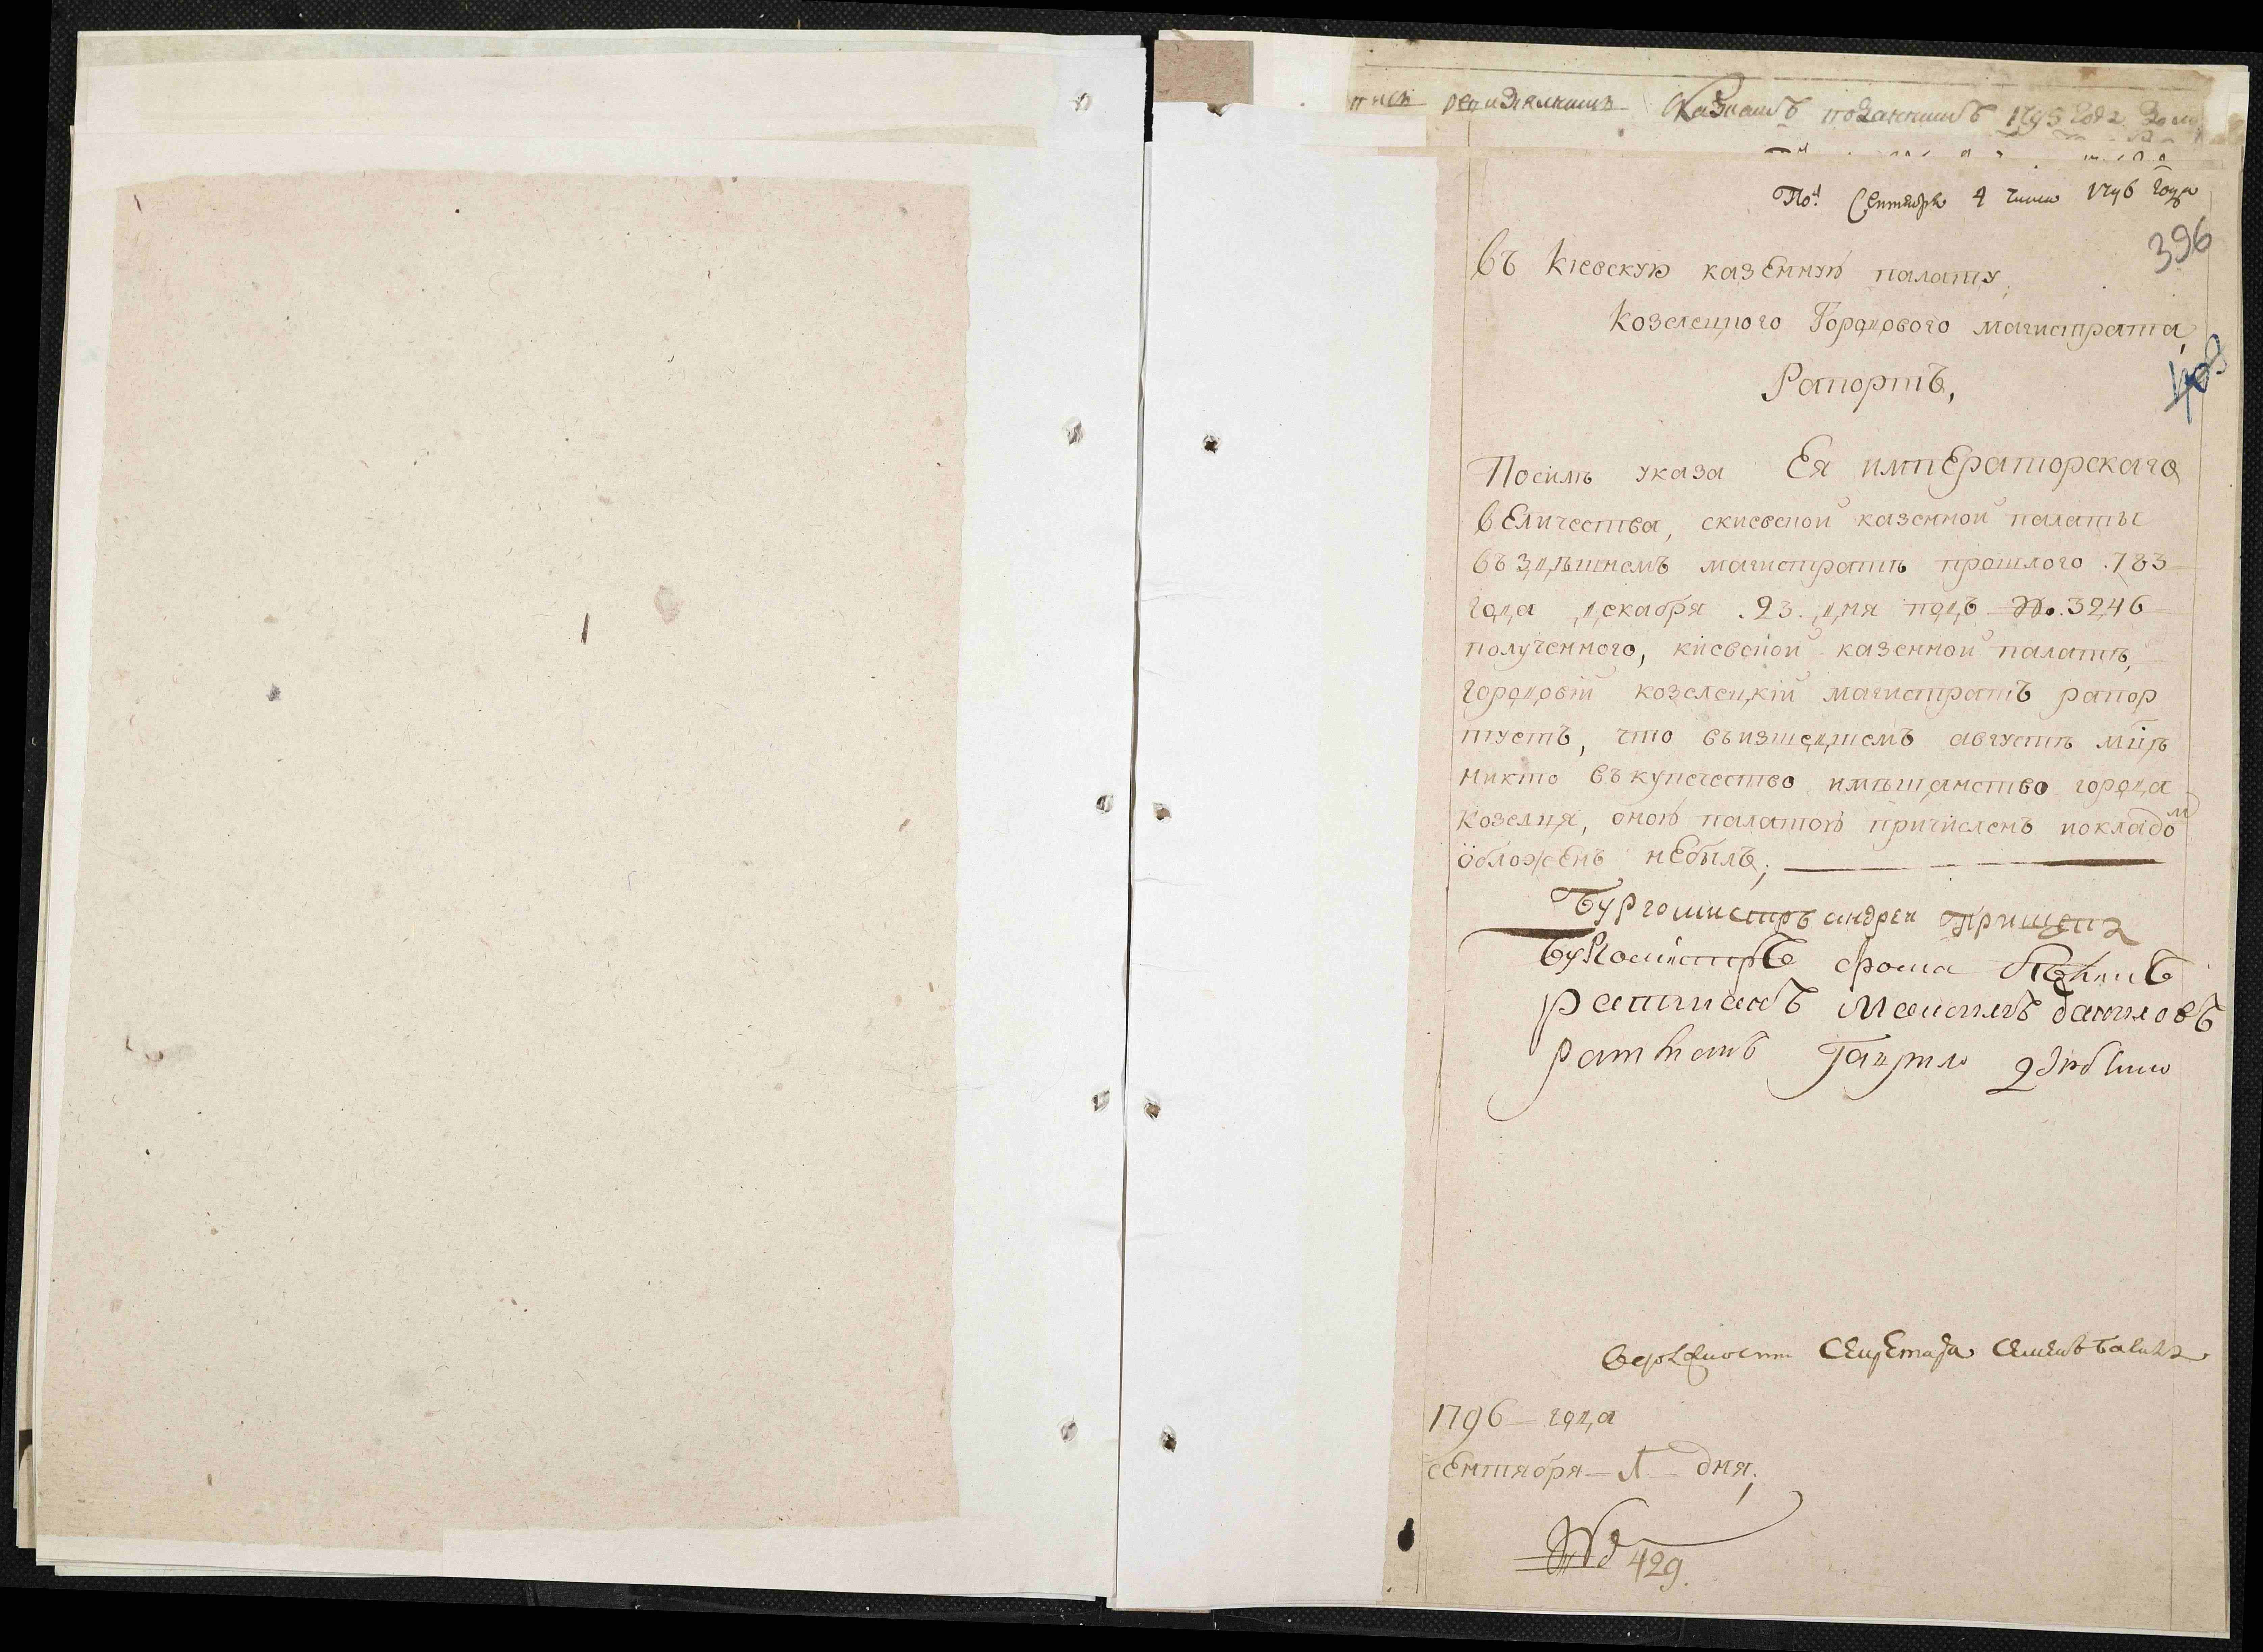 Казнамъ поданнимъ 1795 года
Пол. Сентября 4 числа 1796 года
396
въ Кіевскую казенную палату,
Козелецкого Городового магистрата
408
Рапортъ,
Посилѣ указа Ея императорскаго
величества, скиевской казенной палаты
въ здѣшнемъ магистратѣ прошлого .783
года декабря .23. дня подъ №. 3246
полученного, киевской казенной палатѣ,
городовій козелецкій магистратъ рапор
туетъ, что въизшедшемъ августѣ мцѣ
никто въ купечество имѣщанство города
Козелця, оною палатою причисленъ иокладом
обложенъ небылъ;
Бургомистръ андреи Прищепа
Бургомистръ фома
ратманъ Максимъ Даниловъ
ратманъ Гаврило
Секретара Семенъ
1796 года
сентября 1 дня;
№ 429.